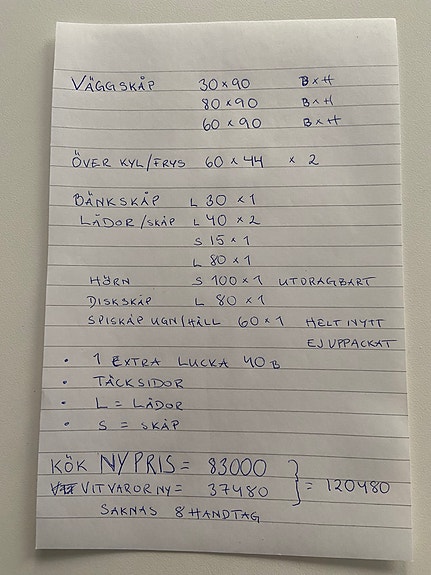 VÄGGSKÅP 30 x 90 B x H
80 x 90 B x H
60 x 90 B x H
ÖVER KYL/FRYS 60 x 44 x 2
BÄNKSKÅP L 30 x 1
LÅDOR/SKÅP L 40 x 2
S 15 x 1
L 80 x 1
HÖRN S 100 x 1 UTDRAGBART
DISKSKÅP L 80 x 1
SPISKÅP UGN/HÄLL 60 x 1 HELT NYTT
EJ UPPACKAT
• 1 EXTRA LUCKA 40 B
• TÄCKSIDOR
• L = LÅDOR
• S = SKÅP
KÖK NYPRIS = 83000
VITVAROR NY = 37480 } = 120480
SAKNAS 8 HANDTAG